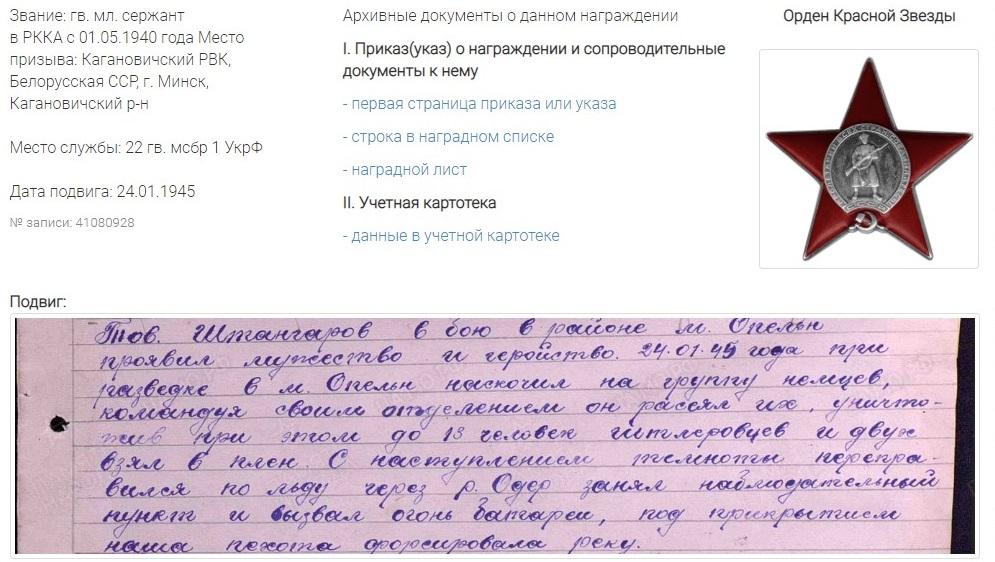 Звание: гв. мл. сержант
в РККА с 01.05.1940 года Место
призыва: Кагановичский РВК,
Белорусская ССР, г. Минск,
Кагановичский р-н
Место службы: 22 гв. мсбр 1 УкрФ
Дата подвига: 24.01.1945
№ записи: 41080928
Архивные документы о данном награждении
I. Приказ(указ) о награждении и сопроводительные
документы к нему
- первая страница приказа или указа
- строка в наградном списке
- наградной лист
II. Учетная картотека
- данные в учетной картотеке
Орден Красной Звезды
Подвиг:
Тов. Штангаров в бою в районе м. Опельн
проявил мужество и геройство. 24.01.45 года при
разведке в м. Опельн наскочил на группу немцев,
командуя своим отделением он рассеял их, уничто-
жив при этом до 13 человек гитлеровцев и двух
взял в плен. С наступлением темноты перепра-
вился по льду через р. Одер занял наблюдательный
пункт и вызвал огонь батареи, под прикрытием
наша пехота форсировала реку.